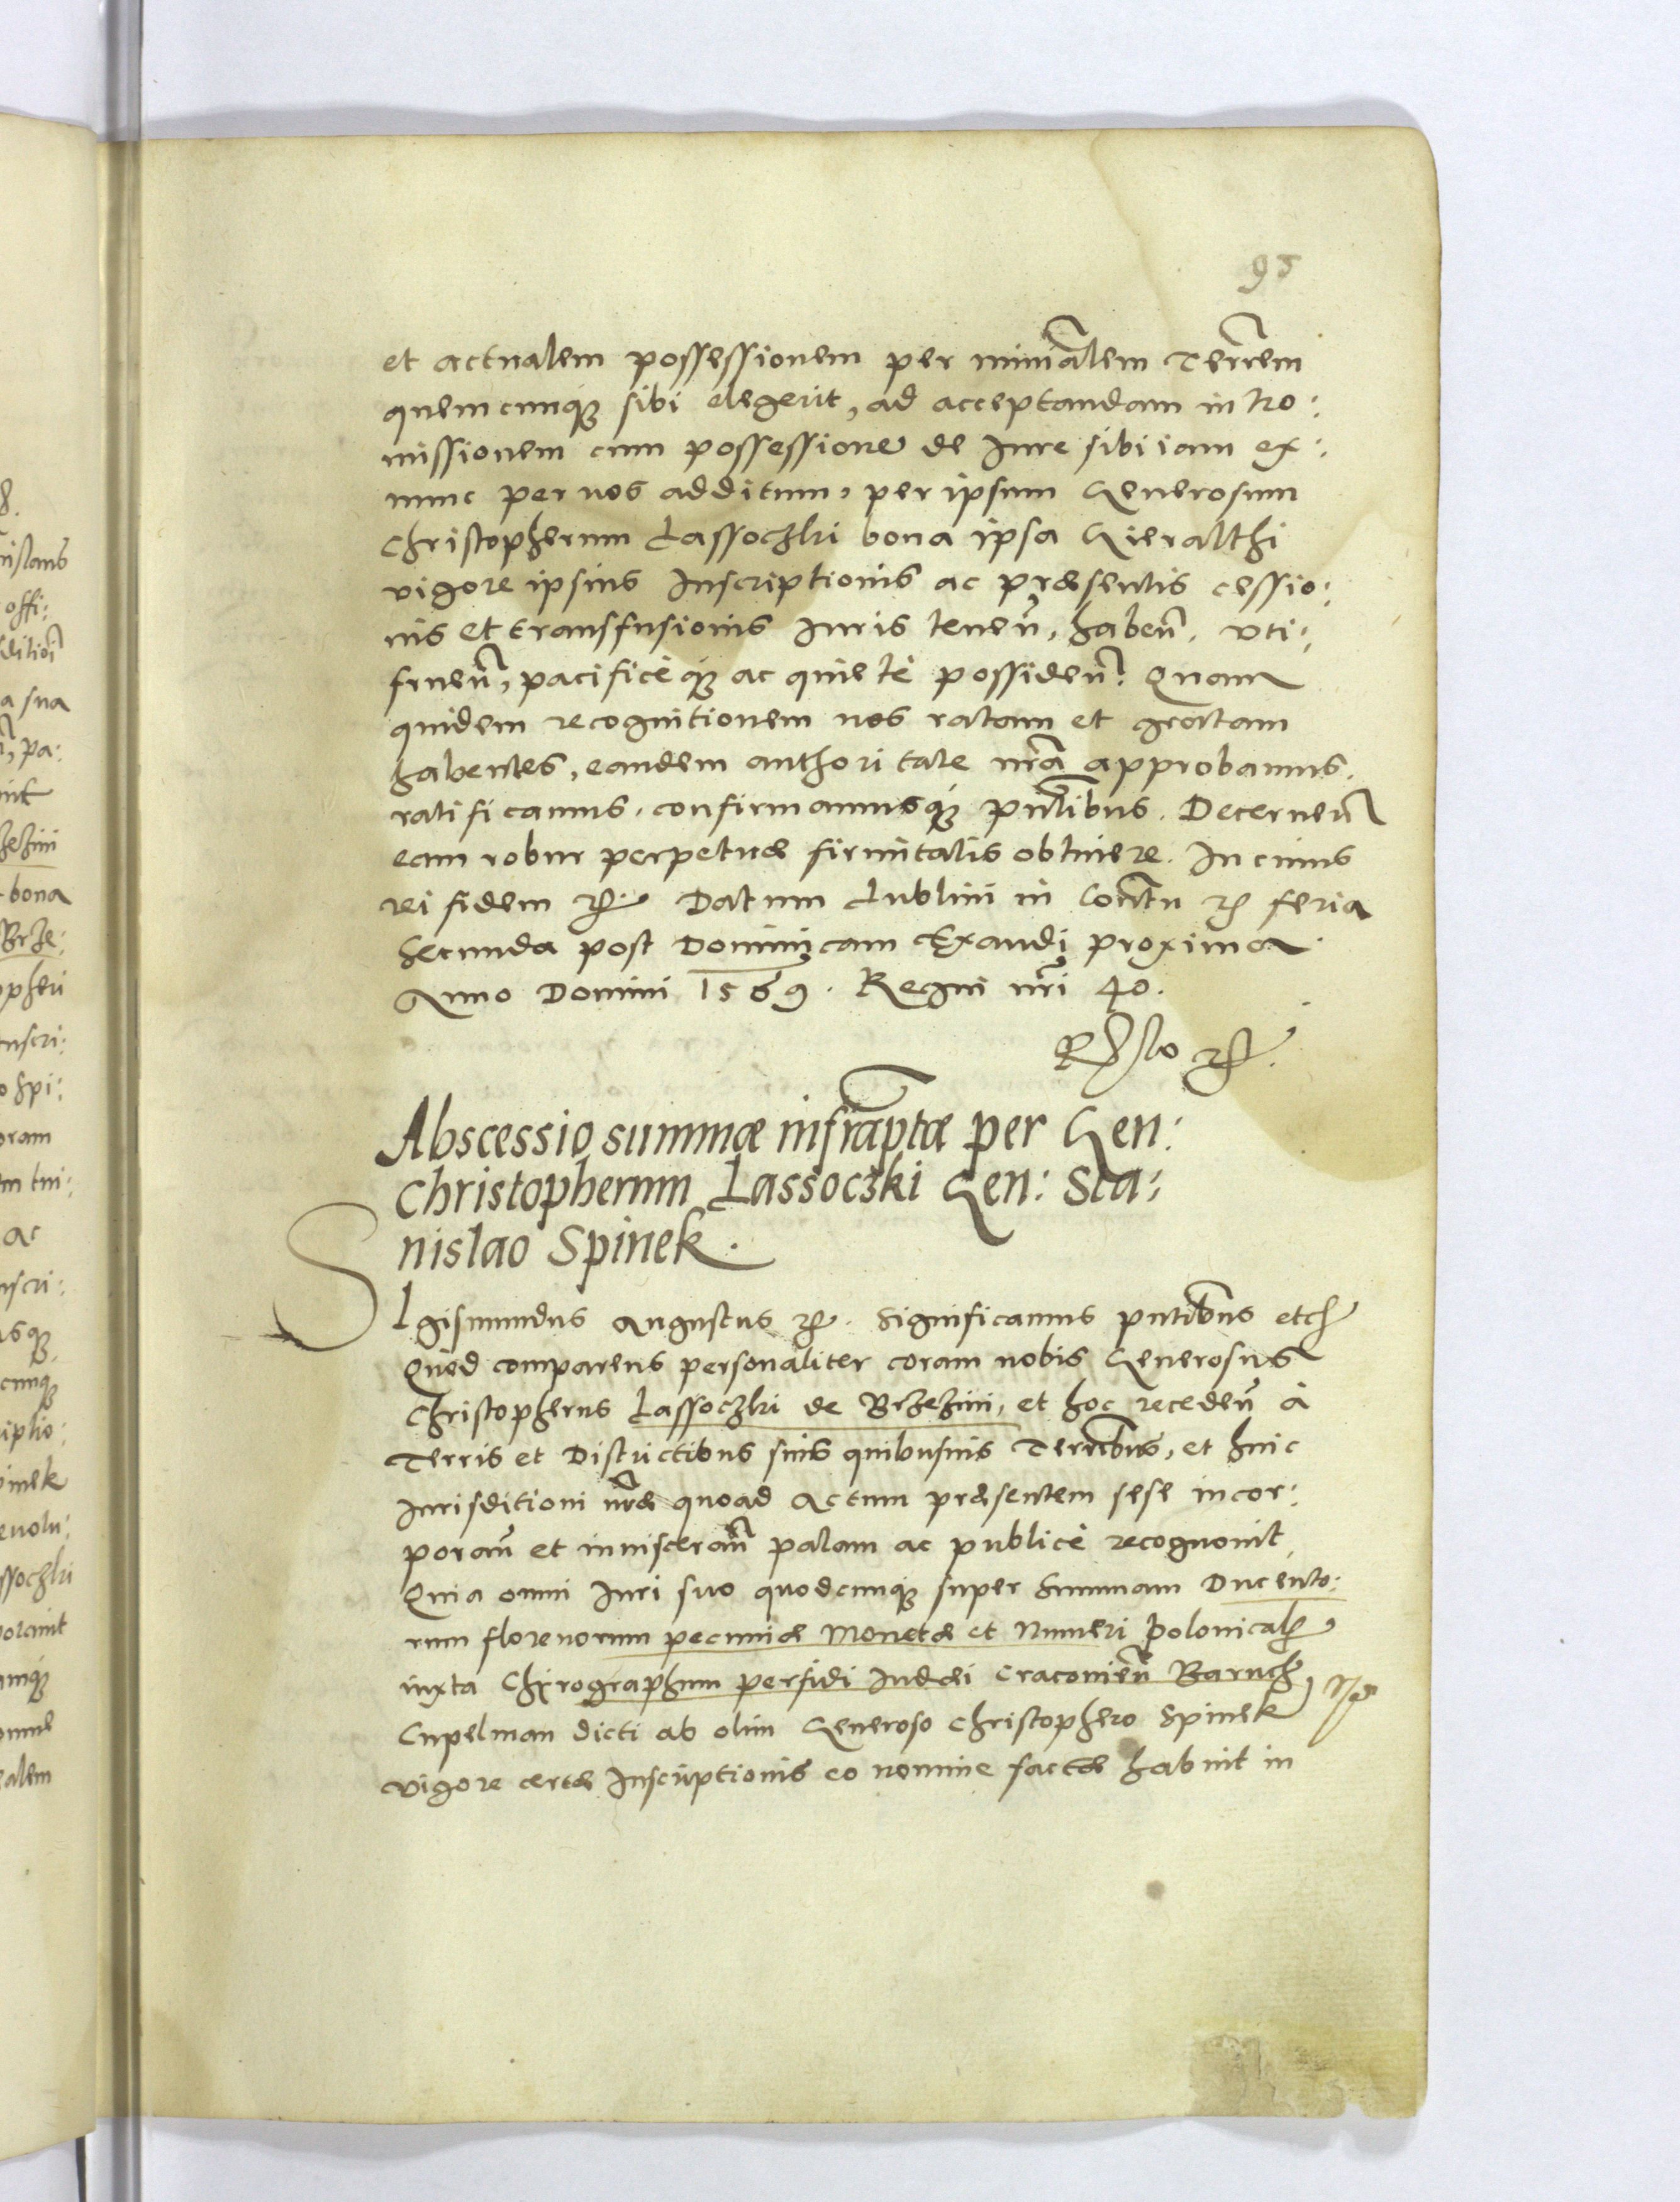 95
et actualem possessionem per minīalem Terrēm
quemcunq̃ sibi elegerit, ad acceptandam intro:
missionem cum possessione de Iure sibi iam ex:
nunc per nos additum, per ipsum Generosum
Christopherum Lassoczki bona ipsa Gieralthi
vigore ipsius Inscriptionis ac præsentis cessio:
nis et transfusionis Iuris tenen̄, haben̄, uti:
fruen̄, pacificè q̃ ac quietè possiden̄. Quam
quidem recognitionem nos ratam et gratam
habentes, eandem authoritate nr̄a approbamus,
ratificamus, confirmamusq̃ pn̄tibus. Decernen̄
eam robur perpetuæ firmitatis obtinere. In cuius
rei fidem etc. Datum Lublini in Con̄tu etc feria
secunda post Dominicam Exaudi proxima
Anno Domini 1569. Regni nr̄i 40.
Abscessio summæ infrāptæ per Gen:
Christopherum Lassoczki Gen: Sta:
nislao Spinek.
SIgismundus Augustus etc. Significamus pn̄tibus etc
Quòd comparens personaliter coram nobis Generosus
Christopherus Lassoczki de Brzezini, et hoc receden̄ à
Terris et Districtibus suis quibusuis Terrībus, et huic
Iurisditioni nr̄æ quoad Actum præsentem sese incor:
poran̄ et inuisceran̄ palam ac publicè recognouit,
Quia omni Iuri suo quodcunq̃ super Summam Ducento:
rum florenorum pecuniæ Monetæ et Numeri Polonicalis
iuxta Chirographum perfidi Iudæi Cracouien̄ Baruch
Cupelman dicti ab olim Generoso Christophero Spinek
vigore certæ Inscriptionis eo nomine factæ habuit in